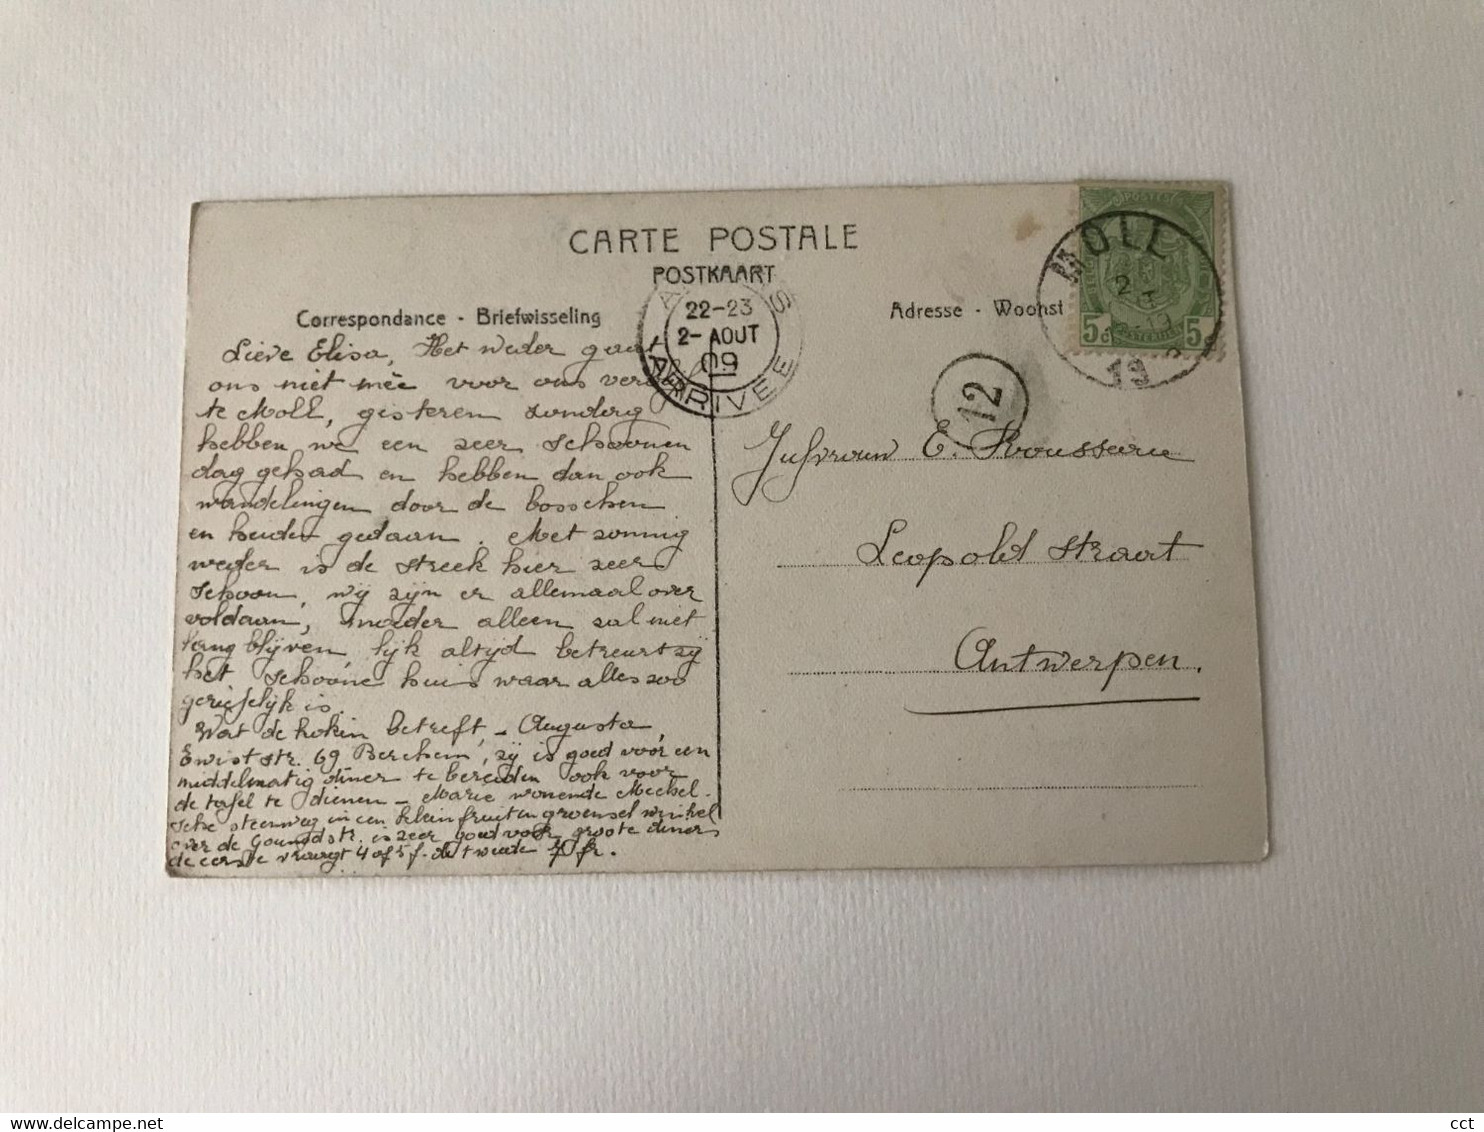 CARTE POSTALE
POSTKAART
Correspondance - Briefwisseling
Adresse - Woonst
MOLL
2
19
5c
5c
22-23
2- AOUT
09
ARRIVEE
12
Lieve Elisa, Het weder gaat
ons niet mêe voor ons
te Moll, gisteren zondag
hebben we een zeer schoonen
dag gehad en hebben dan ook
wandelingen door de bosschen
en heide gedaan. Met zonnig
weder is de streek hier zeer
schoon, wij zijn er allemaal over
voldaan, moeder alleen zal niet
lang blijven, lijk altijd betreurt zij
het schoone huis waar alles zoo
geriefelijk is.
Wat de kokin betreft, - Augusta,
str. 69 Berchem, zij is goed voor een
middelmatig diner te bereiden ook voor
de tafel te dienen - Marie wonende Mechel-
sche steenweg in een klein fruit en groensel winkel
over de str. is zeer goed voor groote diners
de eerste vraagt 4 of 5 f. de tweede fr.
Juffrouw E. Rousseau
Leopold straat
Antwerpen.
cct
www.delcampe.net